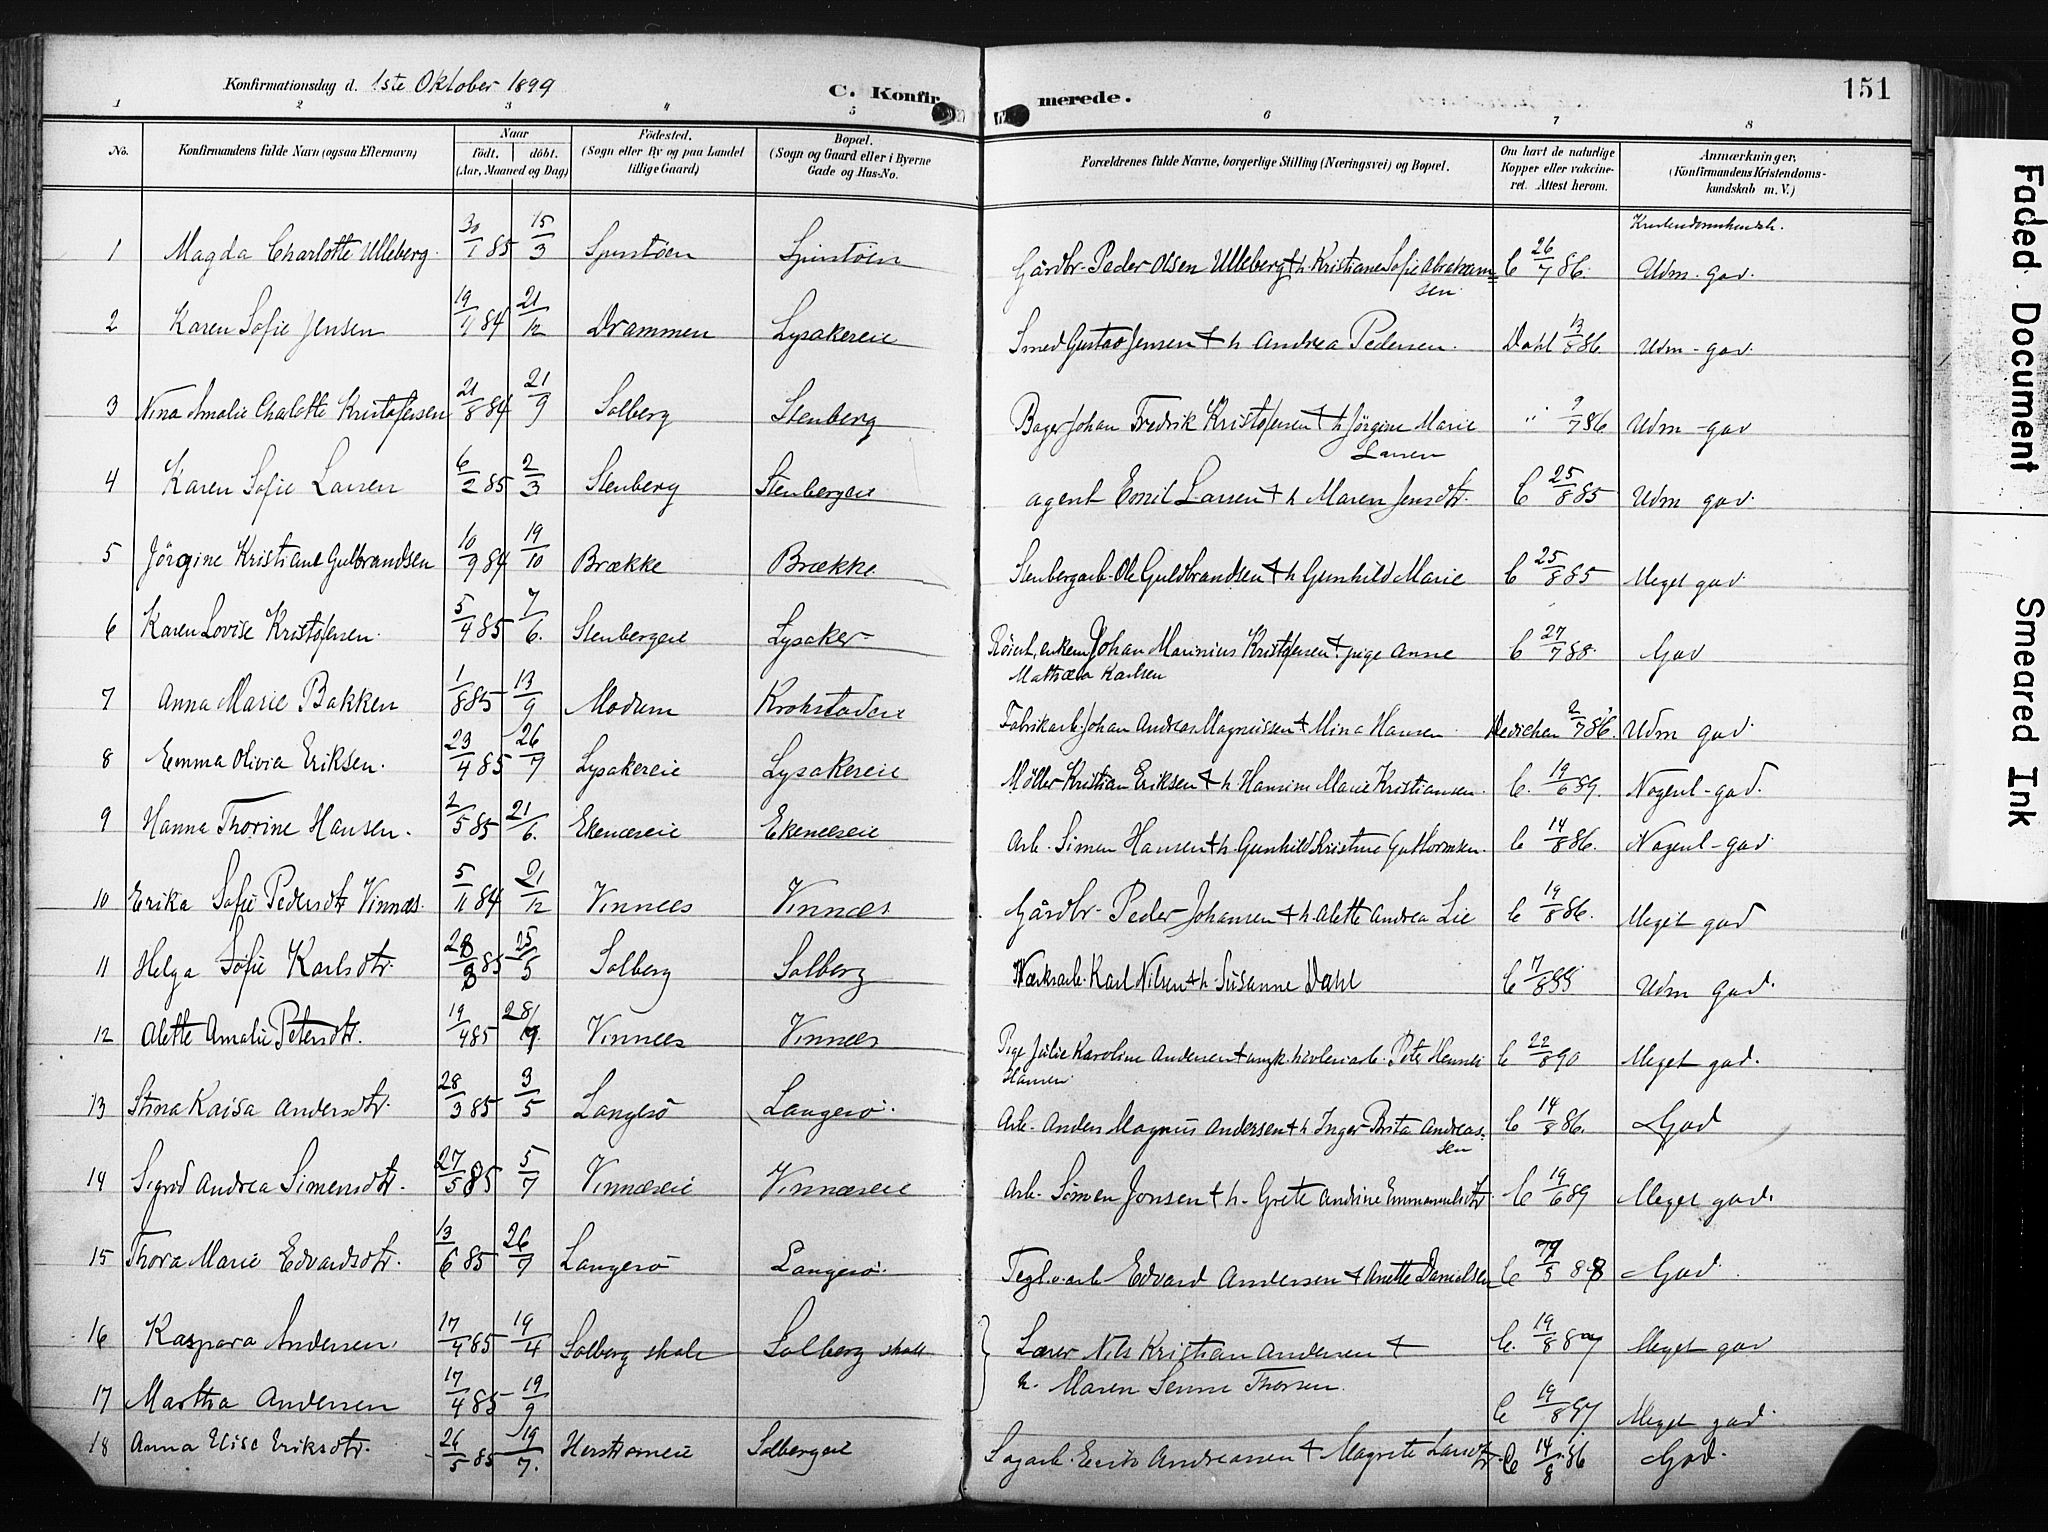 Konfirmationsdag d. 1ste Oktober 1899
C. Konfirmerede.
151
1 2 3 " 5 6 7 8
No. Konfirmandens fulde Navn (ogsaa Efternavn) Naar født. døbt. (Aar, Maaned og Dag) Fødested. (Sogn eller By og paa Landet tillige Gaard) Bopæl. (Sogn og Gaard eller i Byerne Gade og Hus-No. Forældrenes fulde Navne, borgerlige Stilling (Næringsvei) og Bopæl. Om havt de naturlige Kopper eller vakcineret. Attest herom. Anmærkninger, (Konfirmandens Kristendomskundskab m. V.)
1 Magda Charlotte Ulleberg 30/1 85 15/3 Gårdbr. Peder Olsen Ulleberg & h. Kristiane Sofie Abrahamsen C 26/7 86. Udm. god.
2 Karen Sofie Jensen 84 21/12 Drammen Lysakereie Smed Gustav Jensen & h Andrea Pedersen. Dahl 13/8 86 Udm - god
3 Nina Amalie Charlotte Kristofersen 21/8 84 21/9 Solberg Stenberg Bager Johan Fredrik Kristofersen & h Jörgine Marie Larsen " 9/7 86 Udm - god
4 Karen Sofie Larsen 6/2 85 2/3 Stenberg Stenbergeie Agent Emil Larsen & h Maren Jensdtr. C 25/8 85 Udm god
5 Jörgine Kristiane Gulbrandsen 10/9 84 19/10 Brække Brække Stenbergarb. Ole Guldbrandsen & h Gunhild Marie C 25/8 85 Meget god
6 Karen Lovise Kristofersen. 5/4 85 7/6. Stenbergeie Lysaker Johan Marinius Kristofersen & pige Anne Mathea Karlsen C 27/7 88. God
7 Anna Marie Bakken 1/8 85 13/9 Modum Krokstadeie Fabrikarb. Johan Andreas Magnussen & Mina Hansen Devichen 2/7 86. Udm god
8 Emma Olivia Eriksen. 23/4 85 26/7 Lysakereie Lysakereie Møller Kristian Eriksen & h. Hansine Marie Kristiansen. C. 19/6 89. Nogenl - god.
9 Hanna Thorine Hansen. 2/5 85 21/6. Ekenæseie Ekenæseie Arb. Simen Hansen & h. Gunhild Kristine Guttormsen. C 14/8 86. Nogenl - god
10 Erika Sofie Pedersdtr Vinnæs. 5/11 84 21/12 Vinnæs Vinnæs Gårdbr. Peder Johansen & h. Alette Andrea Lie C 19/8 86. Meget god
11 Helga Sofie Karlsdtr. 85 25/5 Solberg Solberg Værksarb. Karl Nilsen & h. Susanne Dahl C 7/8 Udm god.
12 Alette Amalie Petersdtr. 19/4 85 Vinnæs Vinnæs Pige Julie Karoline Andersen & Peter Henrik Hansen C 22/8 90 Meget god.
13 Stina Kaisa Andersdtr. 28/3 85 3/5 Langesö Langesö. Arb. Anders Magnus Andersen & h Inger Brita Andreassen C 14/8 86. God
14 Sigrid Andrea Simensdtr. 27/5 85 5/7 Vinnæseie Vinnæseie Arb. Simen Jonsen & h. Grete Andrine Emmanuelsdtr. C 19/6 89 Meget god.
15 Thora Marie Edvardsdtr. 13/6 85 26/7 Langesö Langesö. Teglv.arb Edvard Andersen & Anette Danielsen C God
16 Kaspara Andersen 17/4 85 19/4 Solberg skole Solberg skole Lærer Nils Kristian Andersen & h. Maren Senne Thorsen. C. 19/8 Meget god
17 Martha Andersen 17/4 85 C 19/8 Meget god.
18 Anna Elise Eriksdtr. 26/5 85 19/7. Solbergeie Sagarb. Erik Andreassen & Magrete Larsdtr. C 14/8 86 God.
Faded Document
Smeared Ink